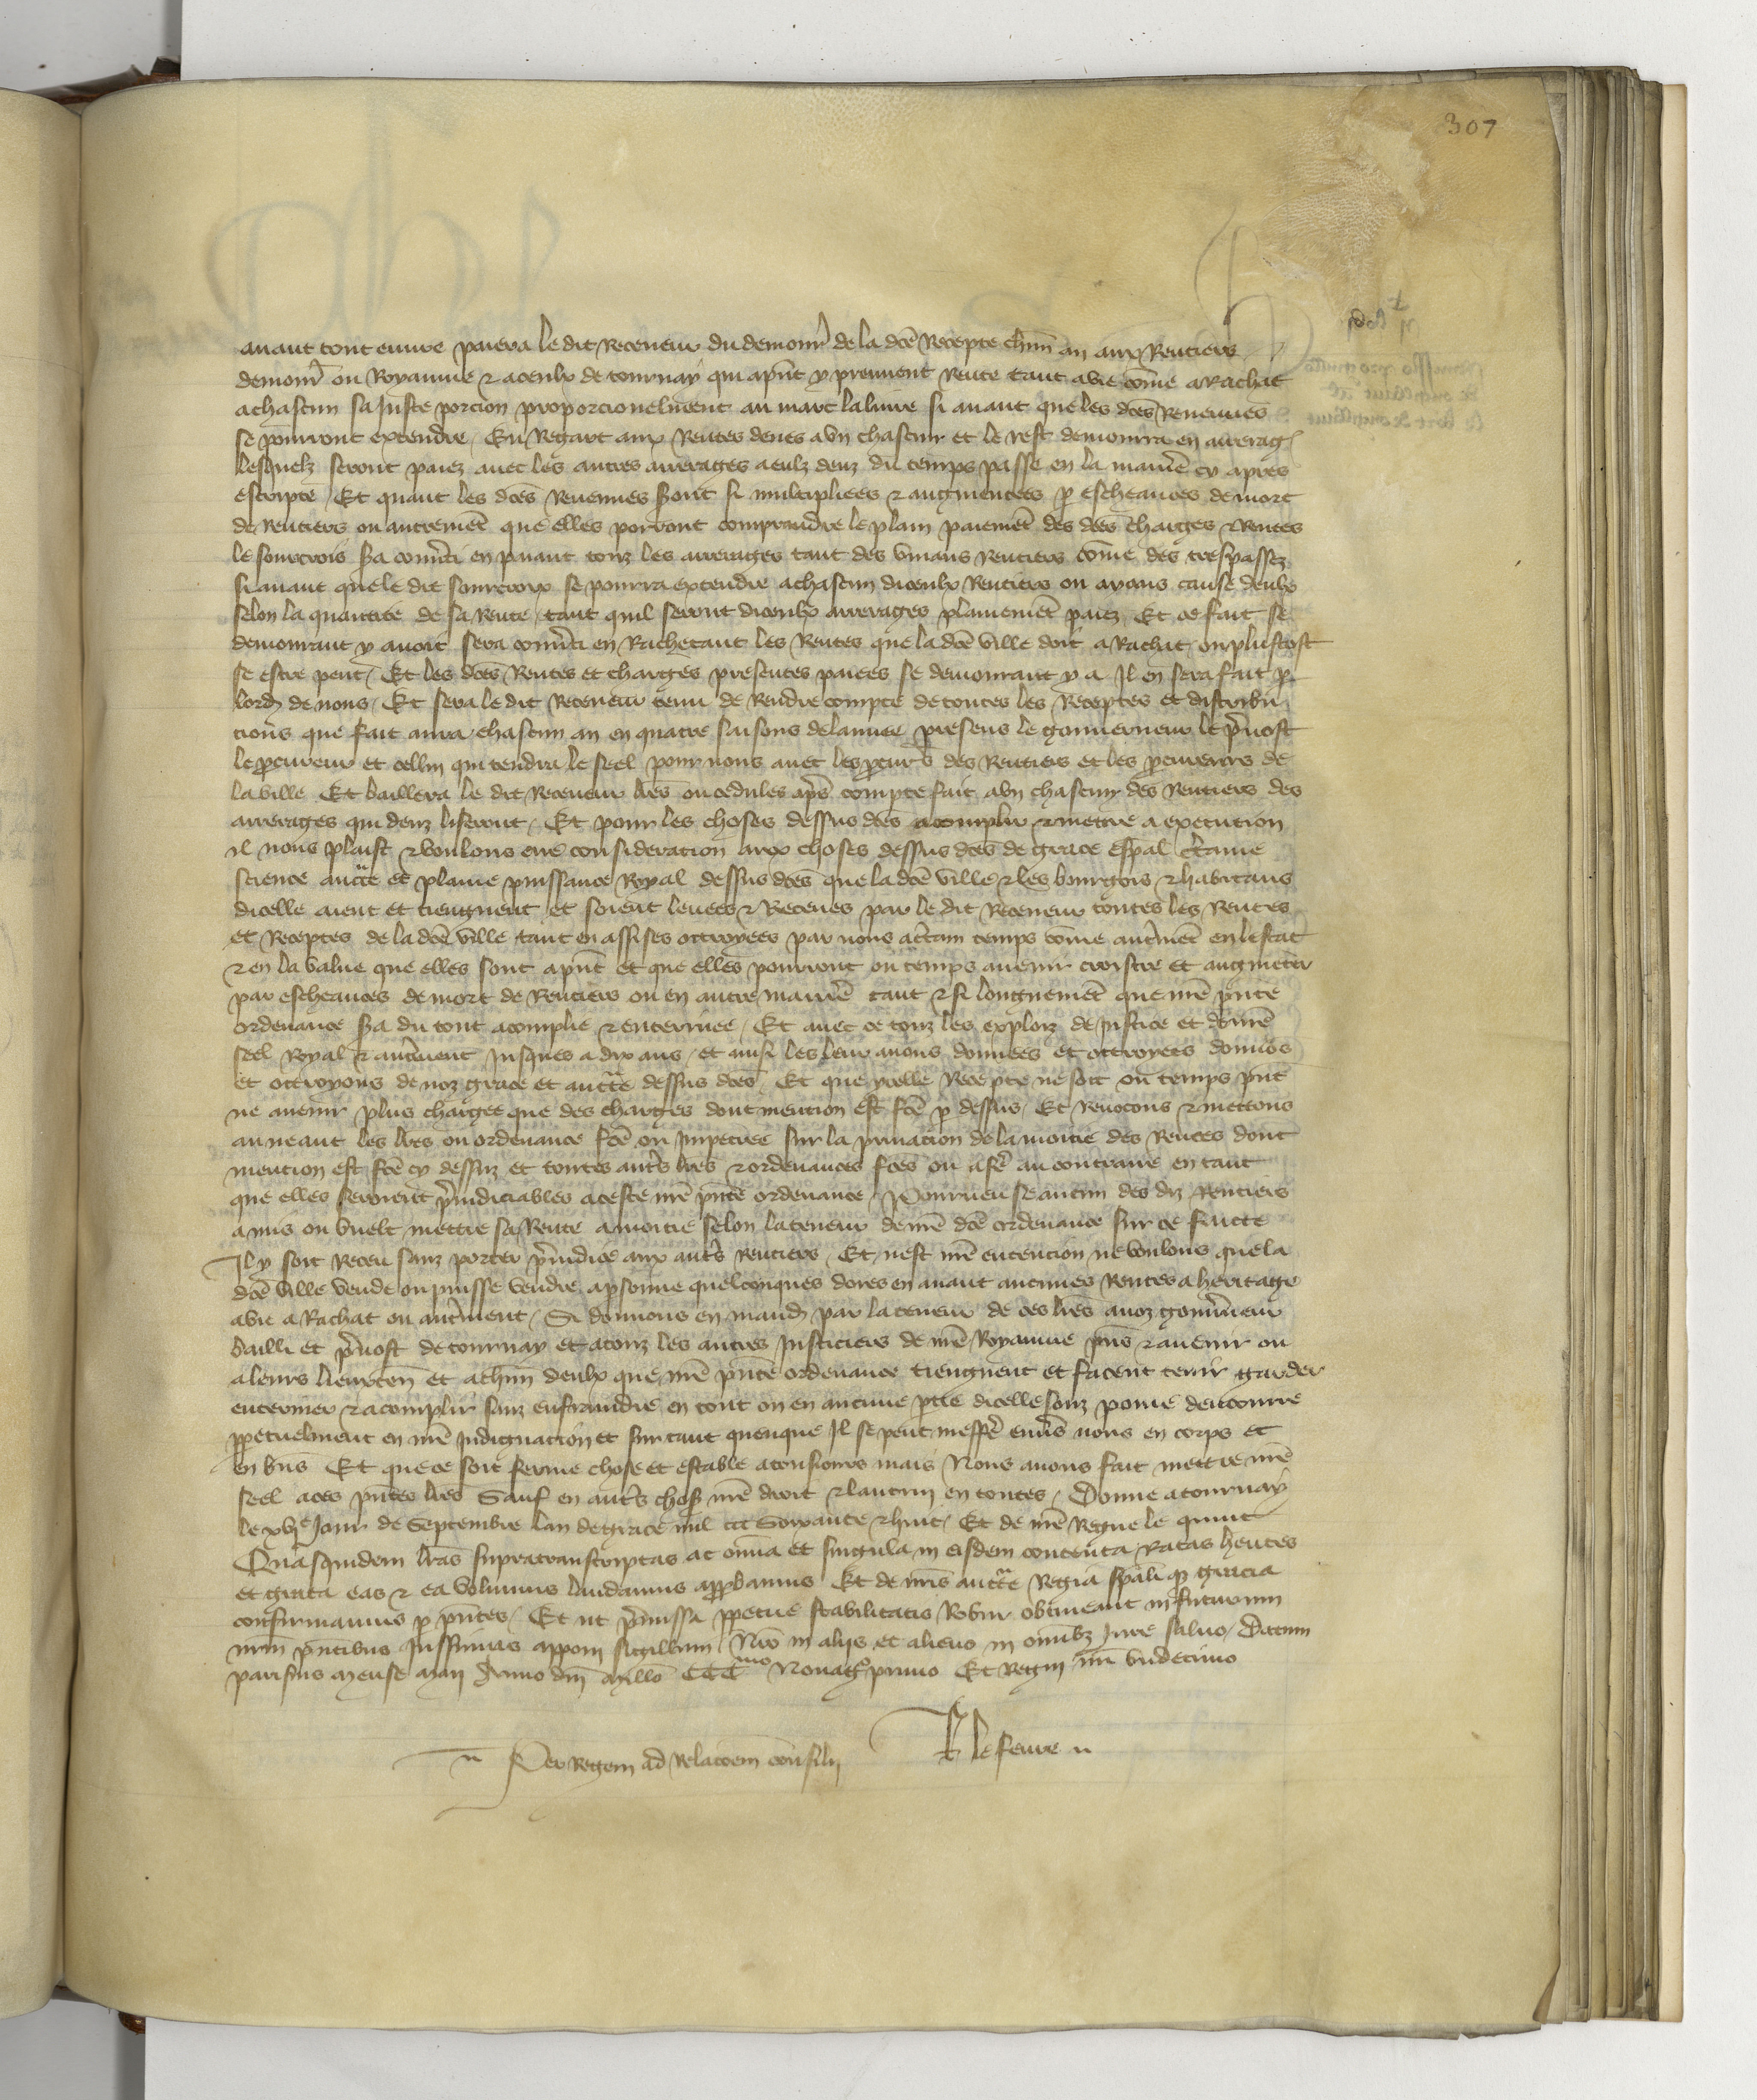 307
auant tout euure paiera le dit Receueur du demour̄ de la dc̄e Recepte chūn an aux Rentiers
demour̄ ou Royaume & a ceulx de tournay qui a pn̄t y prennent Rente tant a vie cōme a Rachat
a chascun sa Juste porcion proporcionelment au marc la liure si auant que les dc̄es Reuenues
se pourront extendre / Eu Regart aux Rentes deues a vn chascun et le rest demourra en arreraḡ
lesquelz seront paiez auec les autres arrerages a eulz deuz du temps passe en la manr̄e cy apres
escripte / Et quant les dc̄es Reuenues sront si multipliees & augmentees p̄ escheances de mort
de Rentiers ou autremēt que elles porront comprandre le plain paiemēt des dc̄es charges & Rentes
le sourcrois sra conūti en paiant touz les arrerages tant des viuans Rentiers cōme des trespassez
si auant que le dit sourcroix se pourra extendre a chascun diceulx Rentiers ou aians cause deulx
selon la quantite de sa Rente / tant quil seront diceulx arrerages plainemēt paiez / Et ce fait se
demourant y auoit sera conūti en Rachetant les Rentes que la dc̄e ville doit a Rachat / ou plustost
se estre peut / Et les dc̄es Rentes et charges presentes paiees se demourant y a Il en sera fait p̄
lord̄ de nous / Et sera le dit Receueur tenu de Rendre compte de toutes les Receptes et distribu
tions que fait aura chascun an en quatre saisons de lannee presens le gouuerneur le p̄uost
le p̄cureur et cellui qui tendra le seel pour nous auec les p̄cur̄s des Rentiers et les p̄cureurs de
la ville Et baillera le dit Receueur lr̄es ou cedules ap̄s compte fait a vn chascun des Rentiers des
arrerages qui deuz li seront / Et pour les choses dessus dc̄es acomplir & mettre a execution
Il nous plaist & voulons eue consideration aux choses dessus dc̄es de grace esp̄al c̄taine
science auct̄e et plaine puissance Royal dessus dc̄es que la dc̄e ville & les bourgois & habitans
dicelle aient et tiengnent et soient leuees & Receues par le dit Receueur toutes les Rentes
et Receptes de la dc̄e ville tant en assises ottroyees par nous a c̄tain temps cōme autr̄mēt en lestat
& en la value que elles sont a pn̄t et que elles pourront ou temps auenir croistre et augmēter
par escheances de mort de Rentiers ou en autre manr̄e tant & si longuemēt que nr̄e pn̄te
ordenance sra du tout acomplie & enterinee / Et auec ce touz les exploiz de Justice et de nr̄e
seel Royal & autr̄ment Jusques a dix ans / et ainsi les leur auons donnees et ottroyees donnōs
et ottroyons de noz grace et auct̄e dessus dc̄es / Et que ycelle Recepte ne soit ou temps pn̄t
ne auenir plus chargee que des charges dont mention est fc̄e p̄ dessus / Et Reuocons & mettons
au neant les lr̄es ou ordenance fc̄e ou Impetree sur la priuation de la moitie des Rentes dont
mention est fc̄e cy dessuz et toutes autr̄s lr̄es & ordenances fc̄es ou a fr̄e au contraire en tant
que elles seroient p̄iudiciables a ceste nr̄e pn̄te ordenance / Pourueu se aucun des diz Rentiers
a mis ou vuelt mettre sa Rente a moitie selon la teneur de nr̄e dc̄e ordenance sur ce faicte
Il y soit Receu sanz porter p̄iudice aux autr̄s Rentiers / Et nest nr̄e entencion ne voulons que la
dc̄e ville vende ou puisse vendre a p̄sonne quelconques dores en auant aucunes Rentes a heritage
a vie a Rachat ou autr̄ment / Si donnons en mand̄ par la teneur de ces lr̄es a noz gouūneur
bailli et p̄uost de tournay et a touz les autres Justiciers de nr̄e Royaume pn̄s & auenir ou
a leurs lieuxten̄ et a chūn deulx que nr̄e pn̄te ordenance tiengnent et facent tenir garder
enteriner & acomplir sanz enfraindre en tout ou en aucune p̄tie dicelle sonz poine dencourre
pp̄etuelment en nr̄e Indignation et sur tant quenque Il se peut meffr̄e enūs nous en corps et
en biēs Et que ce soit ferme chose et estable a tousiours mais Nous auons fait mettre nr̄e
seel a ces pn̄tes lr̄es Sauf en autr̄s choses nr̄e droit & lautruy en toutes / Donne a tournay
le xvjᵉ Jour de Septembre lan de grace mil ccc Soixante & huit / Et de nr̄e Regne le quint
Quasquidem lr̄as supratranscriptas ac om̄ia et singula in eisdem contenta Ratas hentes
et grata eas & ea volumus laudamus app̄bamus Et de nr̄is auct̄e Regia sp̄ali q̄ gracia
confirmamus p̄ pn̄tes / Et ut p̄missa pp̄etue stabilitatis Robur obtineant in futurum
nr̄m pn̄tibus Jussimus apponi sigillum Nr̄o in alijs et alieno in omībz Jure saluo / Datum
parisius mense maij Anno dn̄i mill̄o CCCᵐᵒ Nonag̊ primo Et Regni nr̄i vndecimo
Per Regem ad Relac̄oem consilij
le feure